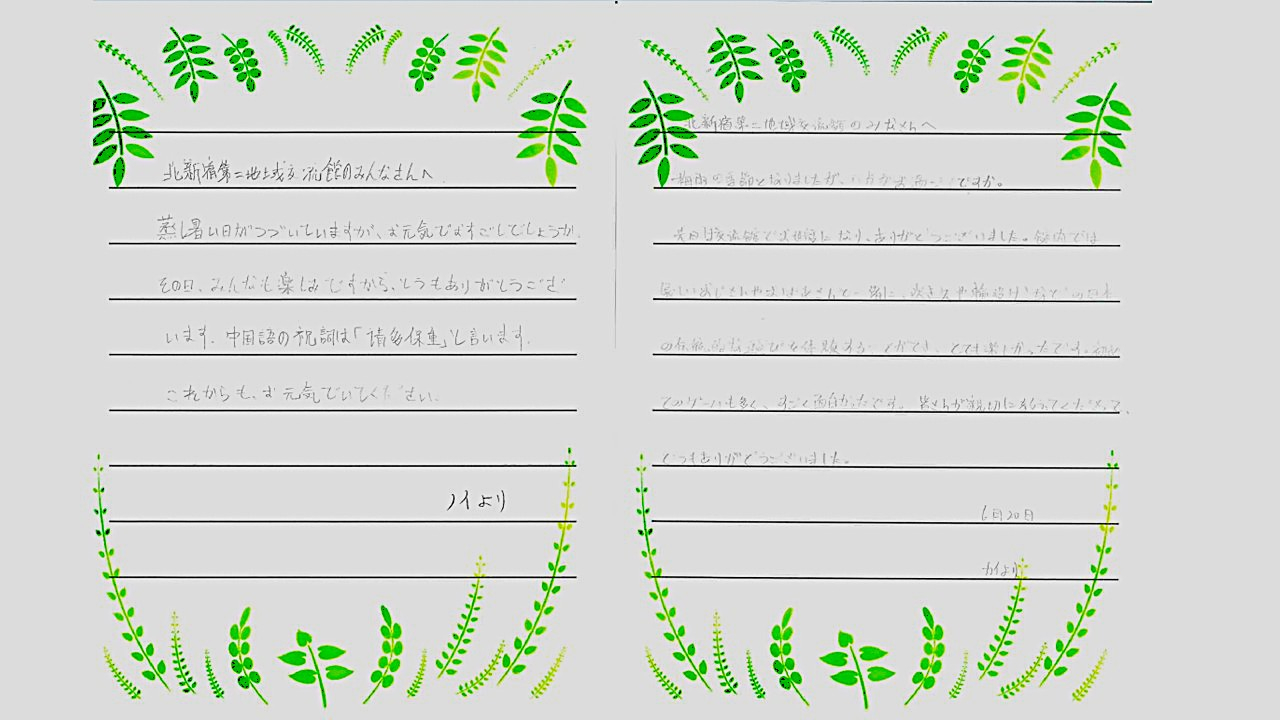 北新宿第二地域交流館のみんなさんへ
蒸し暑い日がつづいていますが、お元気でおすごしでしょうか。
その日、みんなも楽しみですから、とうもありがとうござ
います。中国語の祝詞は「请多保重」と言います。
これからも、お元気でいてください。
ノイより
北新宿第二地域交流館のみなさんへ
梅雨の季節となりましたが、いかがお過ごしですか。
先日は交流館でお世話になり、ありがとうございました。館内では
おじさんやおばあさんと一緒に、吹き矢や輪投げなどの日本
の伝統的な遊びを体験することができ、とても楽しかったです。初め
てのゲームも多く、すごく面白かったです。皆さんが親切に教えてくださって、
どうもありがとうございました。
6月20日
カイより